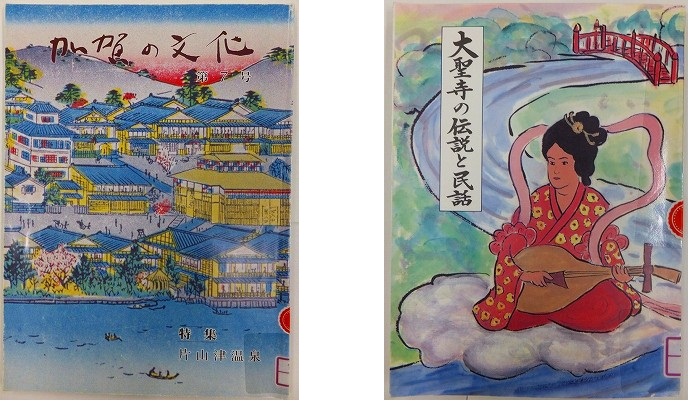 加賀の文化
第7号
特集
片山津温泉
大聖寺の伝説と民話